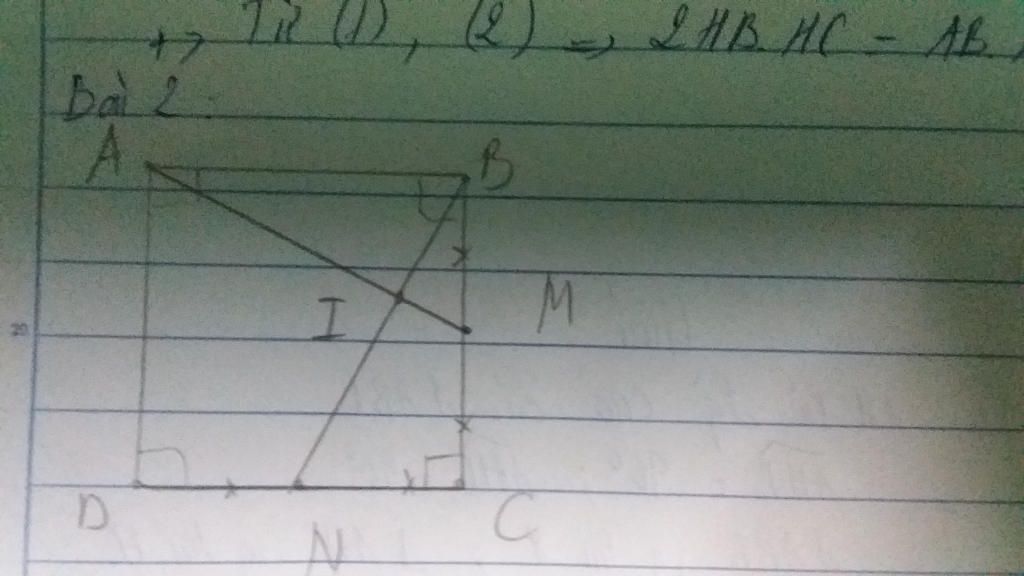 +> Từ (1), (2) => 2HB.HC = AB.
Bài 2:
A B
I M
20
D C
N